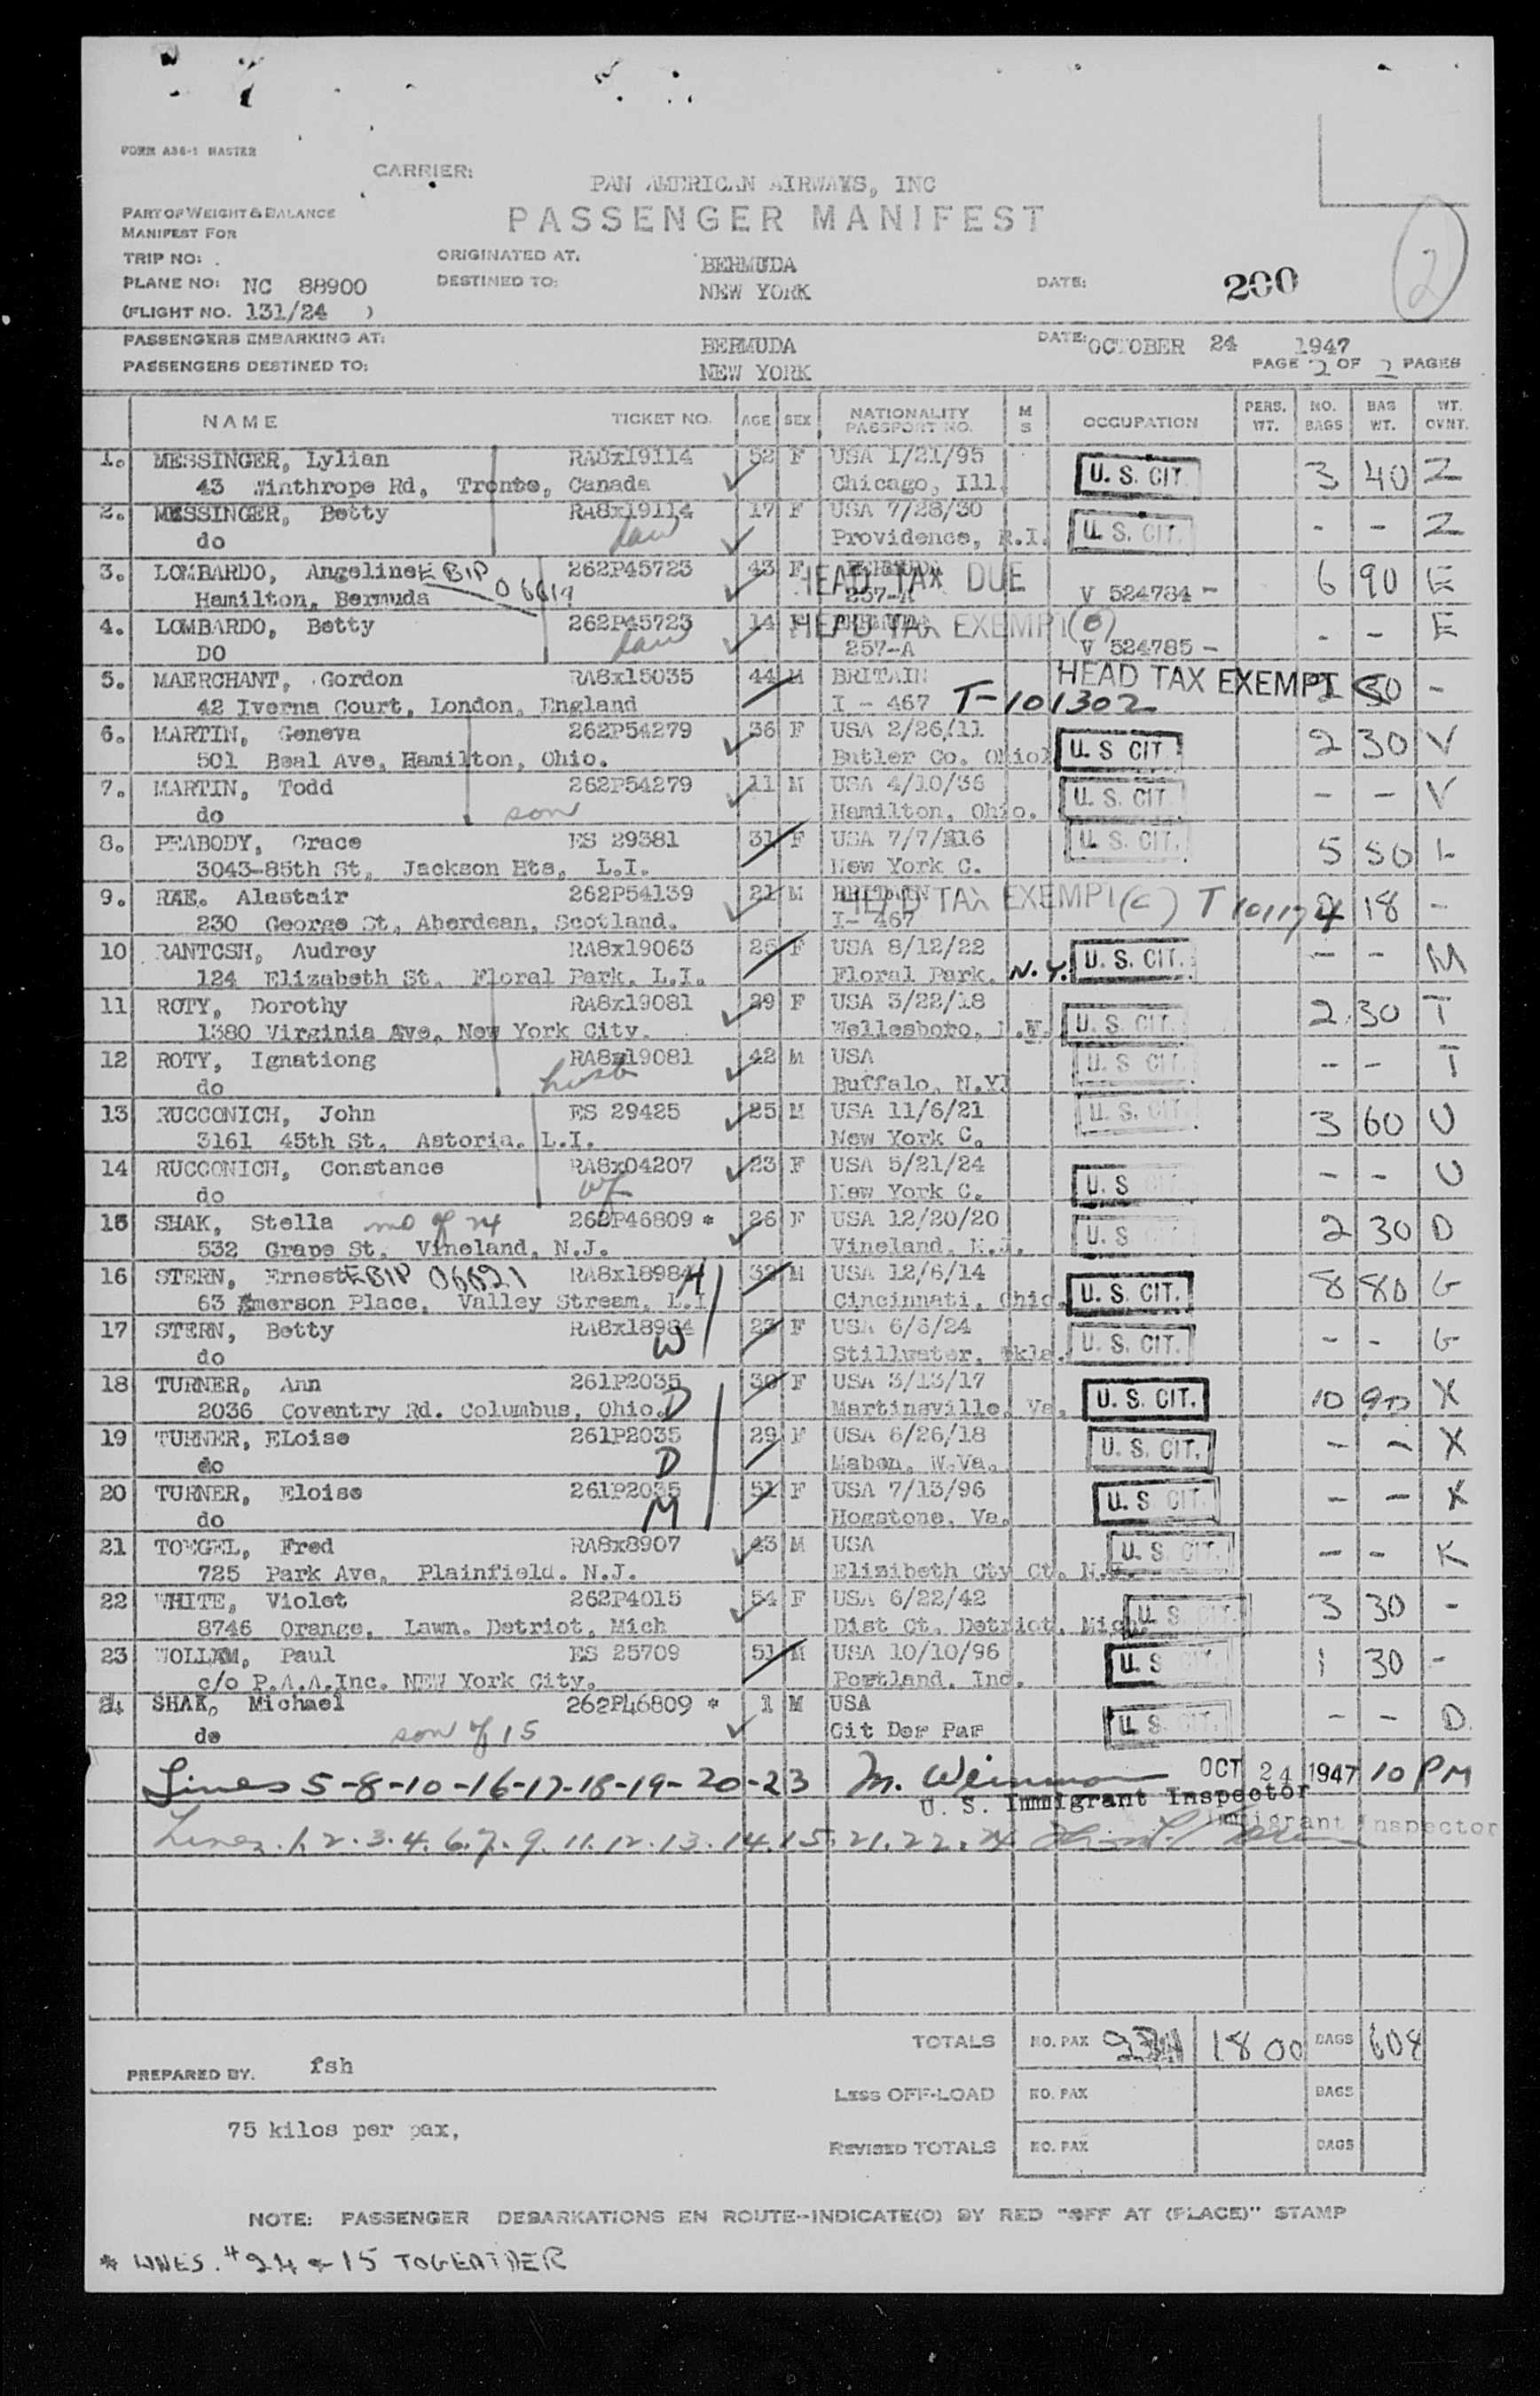 FORM A36-1 MASTER
CARRIER:
PAN AMERICAN AIRWAYS, INC
PART OF WEIGHT & BALANCE
MANIFEST FOR
PASSENGER MANIFEST
TRIP NO:
ORIGINATED AT: BERMUDA
PLANE NO: NC 88900
DESTINED TO: NEW YORK
DATE: 200
2
(FLIGHT NO. 131/24 )
PASSENGERS EMBARKING AT: BERMUDA DATE: OCTOBER 24 1947
PASSENGERS DESTINED TO: NEW YORK PAGE 2 OF 2 PAGES
NAME TICKET NO. AGE SEX NATIONALITY PASSPORT NO. M S OCCUPATION PERS. WT. NO. BAGS BAG WT. WT. CVNT.
1. MESSINGER, Lylian RA8x19114 52 F USA 1/21/95 U. S. CIT. 3 40 Z
43 Winthrope Rd, Tronto, Canada Chicago, Ill.
2. MESSINGER, Betty RA8x19114 17 F USA 7/28/30 U. S. CIT. - - Z
do dau Providence, R.I.
3. LOMBARDO, Angeline EBIP 262P45723 43 F BERMUDA HEAD TAX DUE 6 90 E
Hamilton, Bermuda 257-A V 524784 -
4. LOMBARDO, Betty 262P45723 14 F HEAD TAX EXEMPT - - E
DO dau 257-A V 524785 -
5. MAERCHANT, Gordon RA8x15035 44 M BRITAIN HEAD TAX EXEMPT -
42 Iverna Court, London, England I - 467 T-101302
6. MARTIN, Geneva 262P54279 36 F USA 2/26/11 U. S CIT. 2 30 V
501 Beal Ave, Hamilton, Ohio. Butler Co. Ohio
7. MARTIN, Todd 262P54279 11 M USA 4/10/36 U. S. CIT. - - V
do son Hamilton, Ohio.
8. PEABODY, Grace ES 29381 31 F USA 7/7/16 U. S. CIT. 5 50 L
3043-85th St, Jackson Hts, L.I. New York C.
9. RAE. Alastair 262P54139 21 M BRITAIN HEAD TAX EXEMPT (c) 18 -
230 George St, Aberdean, Scotland. I- 467
10 RANTOSH, Audrey RA8x19063 25 F USA 8/12/22 U. S. CIT. - - M
124 Elizabeth St. Floral Park, L.I. Floral Park. N.Y.
11 ROTY, Dorothy RA8x19081 29 F USA 3/22/18 U. S. CIT. 2 30 T
1380 Virginia Ave, New York City. Wellesboro,
12 ROTY, Ignationg RA8x19081 42 M USA U. S. CIT. - - T
do husb Buffalo, N.Y.
13 RUCCONICH, John ES 29425 25 M USA 11/6/21 U. S. CIT. 3 60 U
3161 45th St, Astoria, L.I. New York C.
14 RUCCONICH, Constance RA8x04207 23 F USA 5/21/24 U. S - - U
do wf New York C.
15 SHAK, Stella mo of 24 262P46809 * 26 F USA 12/20/20 U. S 2 30 D
532 Grape St, Vineland, N.J. Vineland, N.J.
16 STERN, Ernest EBIP 06621 RA8x18984 H 32 M USA 12/6/14 U. S. CIT. 8 80 G
63 Emerson Place, Valley Stream, L.I Cincinnati, Ohio.
17 STERN, Betty RA8x18984 23 F USA 6/6/24 U. S. CIT. - - G
do W Stillwater, Okla.
18 TURNER, Ann 261P2035 30 F USA 3/13/17 U. S. CIT. 10 90 X
2036 Coventry Rd. Columbus, Ohio. D Martinsville, Va.
19 TURNER, ELoise 261P2035 29 F USA 6/26/18 U. S. CIT. - - X
do D Mabon, W.Va.
20 TURNER, Eloise 261P2035 51 F USA 7/13/96 U. S CIT. - - X
do M Hogstone, Va.
21 TOEGEL, Fred RA8x8907 43 M USA U. S. CIT. - - K
725 Park Ave, Plainfield. N.J. Elizibeth Cty Ct. N.J.
22 WHITE, Violet 262P4015 54 F USA 6/22/42 U. S CIT. 3 30 -
8746 Orange, Lawn. Detriot, Mich Dist Ct. Detriot, Mich.
23 WOLLAM, Paul ES 25709 51 M USA 10/10/96 U. S CIT. 1 30 -
c/o P.A.A.Inc. NEW York City. Portland, Ind.
24 SHAK, Michael 262P46809 * 1 M USA U. S. CIT. - - D
do son of 15 Cit Der Par
Lines 5-8-10-16-17-18-19-20-23 M. Weinman OCT 24 1947 10 PM
U. S. Immigrant Inspector
Lines 1. 2. 3. 4. 6. 7. 9. 11. 12. 13. 14. 15. 21. 22. 24 Immigrant Inspector
TOTALS NO. PAX 1800 BAGS 608
PREPARED BY. fsh
LESS OFF-LOAD NO. PAX BAGS
75 kilos per pax,
REVISED TOTALS NO. PAX BAGS
NOTE: PASSENGER DEBARKATIONS EN ROUTE--INDICATE(D) BY RED "OFF AT (PLACE)" STAMP
* LINES. # 24 & 15 TOGEATHER